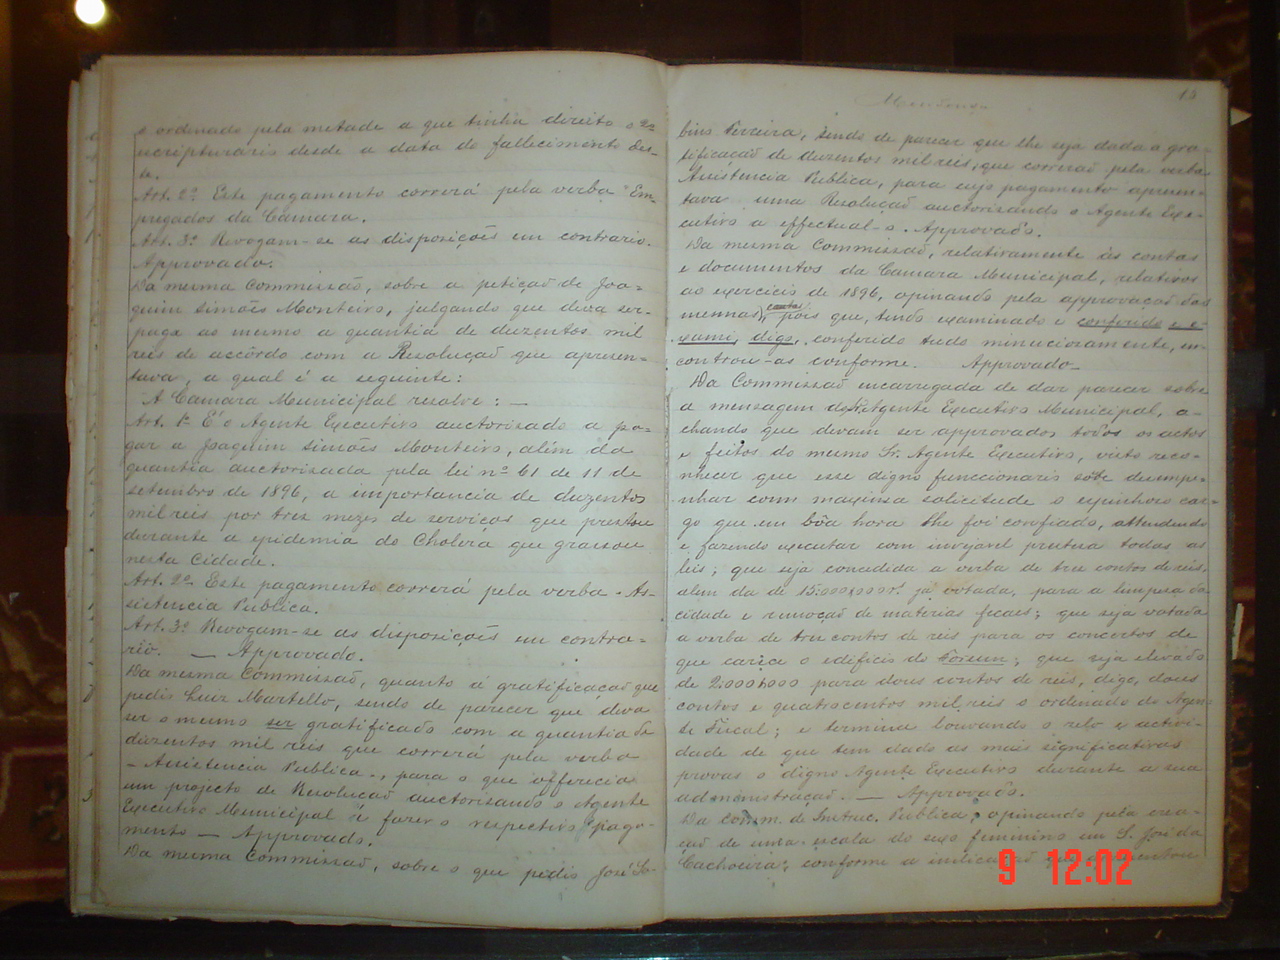 o ordenado pela metade a que tinha direito o 2º
escripturario desde a data do fallecimento des-
te.
Art. 2º Este pagamento correrá pela verba "Em-
pregados da Camara.
Art. 3º Revogam-se as disposições em contrario.
Approvado.
Da mesma Commissão, sobre a petição de Joa-
quim Simões Monteiro, julgando que deva ser
paga ao mesmo a quantia de duzentos mil
reis de accôrdo com a Resolução que apresen-
tava, a qual é a seguinte:
A Camara Municipal resolve: —
Art. 1º É o Agente Executivo auctorisado a pa-
gar a Joaquim Simões Monteiro, além da
quantia auctorisada pela lei nº 61 de 11 de
setembro de 1896, a importancia de duzentos
mil reis por tres mezes de serviços que prestou
durante a epidemia do Cholera que grassou
nesta Cidade.
Art. 2º Este pagamento correrá pela verba - As-
sistencia Publica.
Art. 3º Revogam-se as disposições em contra-
rio. — Approvado.
Da mesma Commissão, quanto á gratificação que
pedio Luiz Martello, sendo de parecer que deva
ser o mesmo ser gratificado com a quantia de
duzentos mil reis que correrá pela verba
- Assistencia Publica -, para o que offerecia
um projecto de Resolução auctorisando o Agente
Executivo Municipal á fazer o respectivo paga-
mento — Approvado.
Da mesma Commissão, sobre o que pedio José Sa-
Mendonça
15
bino Ferreira, sendo de parecer que lhe seja dada a gra-
tificação de duzentos mil reis, que correrão pela verba
Assistencia Publica, para cujo pagamento apresen-
tava uma Resolução auctorisando o Agente Exe-
cutivo a effectual-o. Approvado.
Da mesma Commissão, relativamente ás contas
e documentos da Camara Municipal, relativos
ao exercicio de 1896, opinando pela approvação das
mesmas contas, pois que, tendo examinado e conferido e e-
xami, digo, conferido tudo minuciosamente, en-
controu-as conforme. Approvado-
Da Commissão encarregada de dar parecer sobre
a mensagem do Sr. Agente Executivo Municipal, a-
chando que devam ser approvados todos os actos
e feitos do mesmo Sr. Agente Executivo, visto reco-
nhecer que esse digno funccionario sóbe desempe-
nhar com maxima solicitude o espinhoso car-
go que em bôa hora lhe foi confiado, attendendo
e fazendo executar com invejavel presteza todas as
leis; que seja concedida a verba de tres contos de reis,
alem da de 15:000,000 rs. já votada, para a limpesa da
cidade e remoção de materias fecaes; que seja votada
a verba de tres contos de reis para os concertos de
que caréce o edificio do Forum; que seja elevado
de 2:000$000 para dous contos de reis, digo, dous
contos e quatrocentos mil reis o ordenado do Agen-
te Fiscal; e termina louvando o zelo e activi-
dade de que tem dado as mais significativas
provas o digno Agente Executivo durante a sua
administração. — Approvado.
Da comm. de Instruc. Publica, opinando pela crea-
ção de uma escola do sexo feminino em S. José da
Cachoeira, conforme a indicação
9 12:02